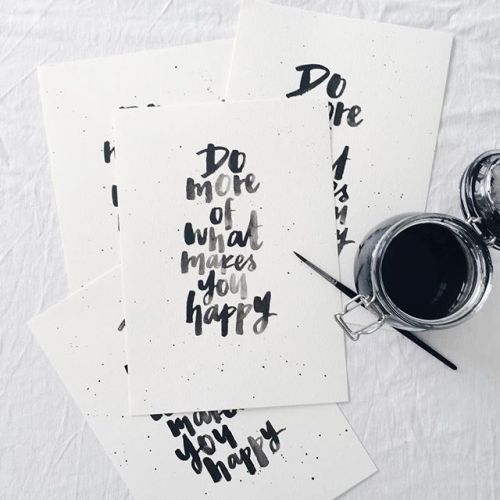 Do
more
of
what
makes
you
happy
Do
more
makes
you
make
you
happy